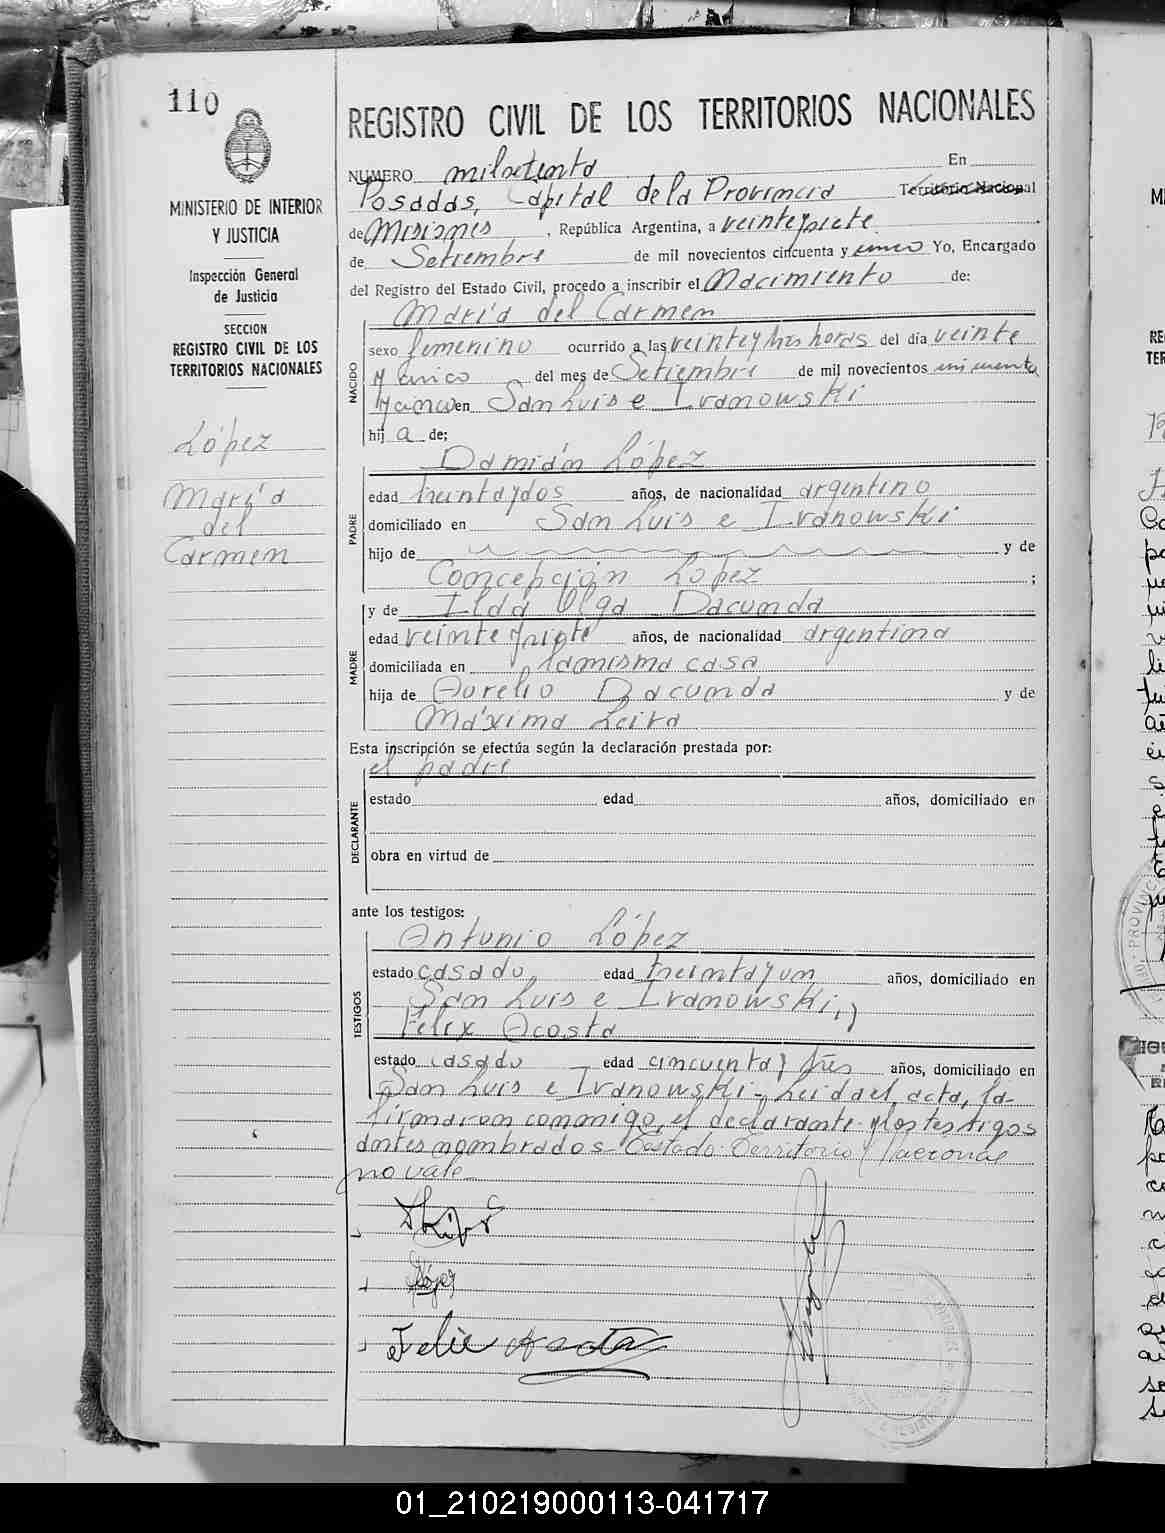 110
REGISTRO CIVIL DE LOS TERRITORIOS NACIONALES
MINISTERIO DE INTERIOR
Y JUSTICIA
Inspección General
de Justicia
SECCION
REGISTRO CIVIL DE LOS
TERRITORIOS NACIONALES
López
María
del
Carmen
NUMERO En
Posadas, Capital de la Provincia Territorio Nacional
de Misiones, República Argentina, a veinteysiete
de Setiembre de mil novecientos cincuenta y Yo, Encargado
del Registro del Estado Civil, procedo a inscribir el Nacimiento de:
María del Carmen
NACIDO
sexo femenino ocurrido a las veinteytres horas del día veinte
y cinco del mes de Setiembre de mil novecientos cincuenta
en San Luis e Ivanowski
hij a de;
Damián López
PADRE
edad treintaydos años, de nacionalidad argentino
domiciliado en San Luis e Ivanowski
hijo de y de
Concepción López ;
y de Ilda Olga Dacunda
MADRE
edad veinte años, de nacionalidad argentina
domiciliada en la misma casa
hija de Aurelio Dacunda y de
Máxima Leiva
Esta inscripción se efectúa según la declaración prestada por:
el padre
DECLARANTE
estado edad años, domiciliado en
obra en virtud de
ante los testigos:
Antonio López
TESTIGOS
estado casado, edad treintayun años, domiciliado en
San Luis e Ivanowski, y
Félix Acosta
estado casado edad cincuenta y tres años, domiciliado en
San Luis e Ivanowski- Leida el acta, la
firmaron conmigo, el declarante y los testigos
antes nombrados- Testado Territorio Nacional
no vale
López
Felix Acosta
01_210219000113-041717